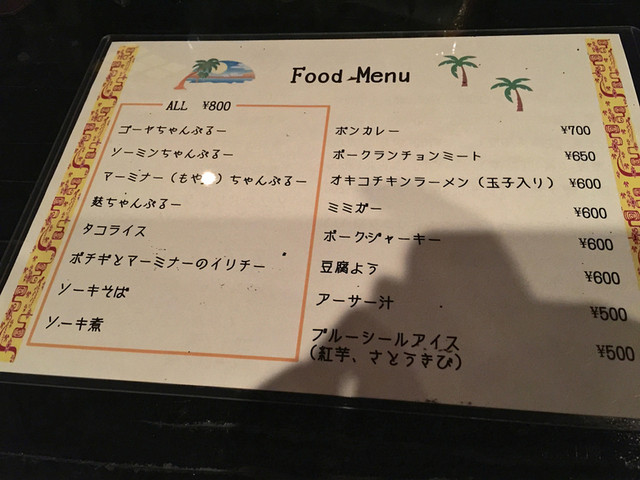 Food Menu
ALL ¥800
ゴーヤちゃんぷるー
ソーミンちゃんぷるー
マーミナー（もや）ちゃんぷるー
麩ちゃんぷるー
タコライス
ポチギとマーミナーのイリチー
ソーキそば
ソーキ煮
ボンカレー ¥700
ポークランチョンミート ¥650
オキコチキンラーメン（玉子入り） ¥600
ミミガー ¥600
ポークジャーキー ¥600
豆腐よう ¥600
アーサー汁 ¥500
ブルーシールアイス
（紅芋、さとうきび） ¥500